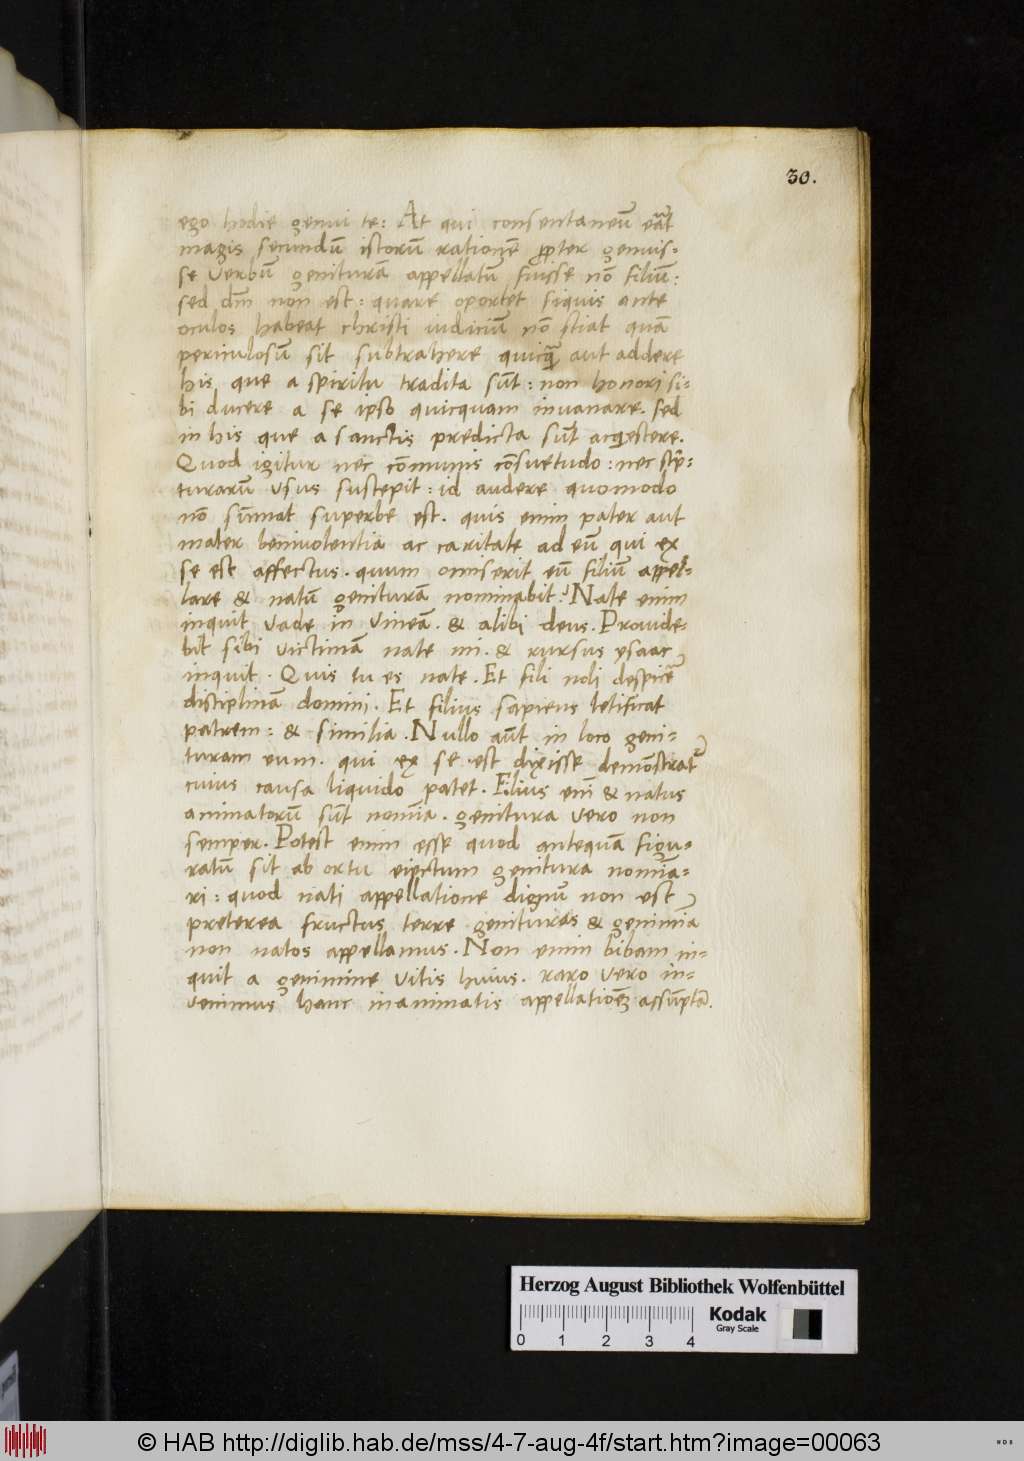 30.
ego hodie genui te: At qui consentaneū erat
magis secundū istorū rationē ꝓpter genuis-
se verbū genituram appellatū fuisse nō filiū:
sed dm̄ non est: quare oportet siquis ante
oculos habeat christi iudiciū nō sciat quā
periculosū sit subtrahere quicq̄ aut addere
his que a spiritu tradita sūt: non honori si-
bi ducere a se ipso quicquam innouare. sed
in his que a sanctis predicta sūt acquiescere.
Quod igitur nec cōmunis cōsuetudo: nec scrip-
turarū usus suscepit: id audere quomodo
nō sūmat superbe est. quis enim pater aut
mater beniuolentia ac caritate ad eū qui ex
se est affectus. quum omiserit eū filiū appel-
lare & natū genituram nominabit? Nate enim
inquit vade in vineā. & alibi deus. Prouide-
bit sibi victimā nate mi. & rursus ysaac
inquit. Quis tu es nate. Et fili noli despicē
disciplinā domini. Et filius sapiens letificat
patrem: & similia. Nullo aūt in loco geni-
turam eum. qui ex se est dixisse demōstrat̄
cuius causa liquido patet. Filius enī & natus
animatorū sūt nomīa. genitura vero non
semper. Potest enim esse quod antequā figu-
ratū sit ab ortu eiectum genitura nomīa-
ri: quod nati appellatione dignū non est
preterea fructus terre genituras & genimīa
non natos appellamus. Non enim bibam in-
quit a genimine vitis huius. raro vero in-
venimus hanc inanimatis appellationē assūptā.
Herzog August Bibliothek Wolfenbüttel
0 1 2 3 4
Kodak
Gray Scale
© HAB http://diglib.hab.de/mss/4-7-aug-4f/start.htm?image=00063